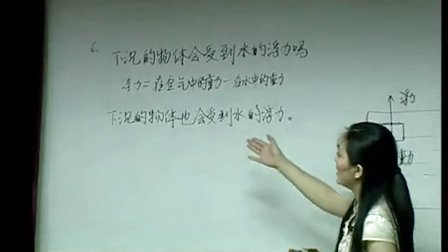 下沉的物体会受到水的浮力吗
浮力=在空气中的重力-在水中的重力
下沉的物体也会受到水的浮力。
浮力
重力